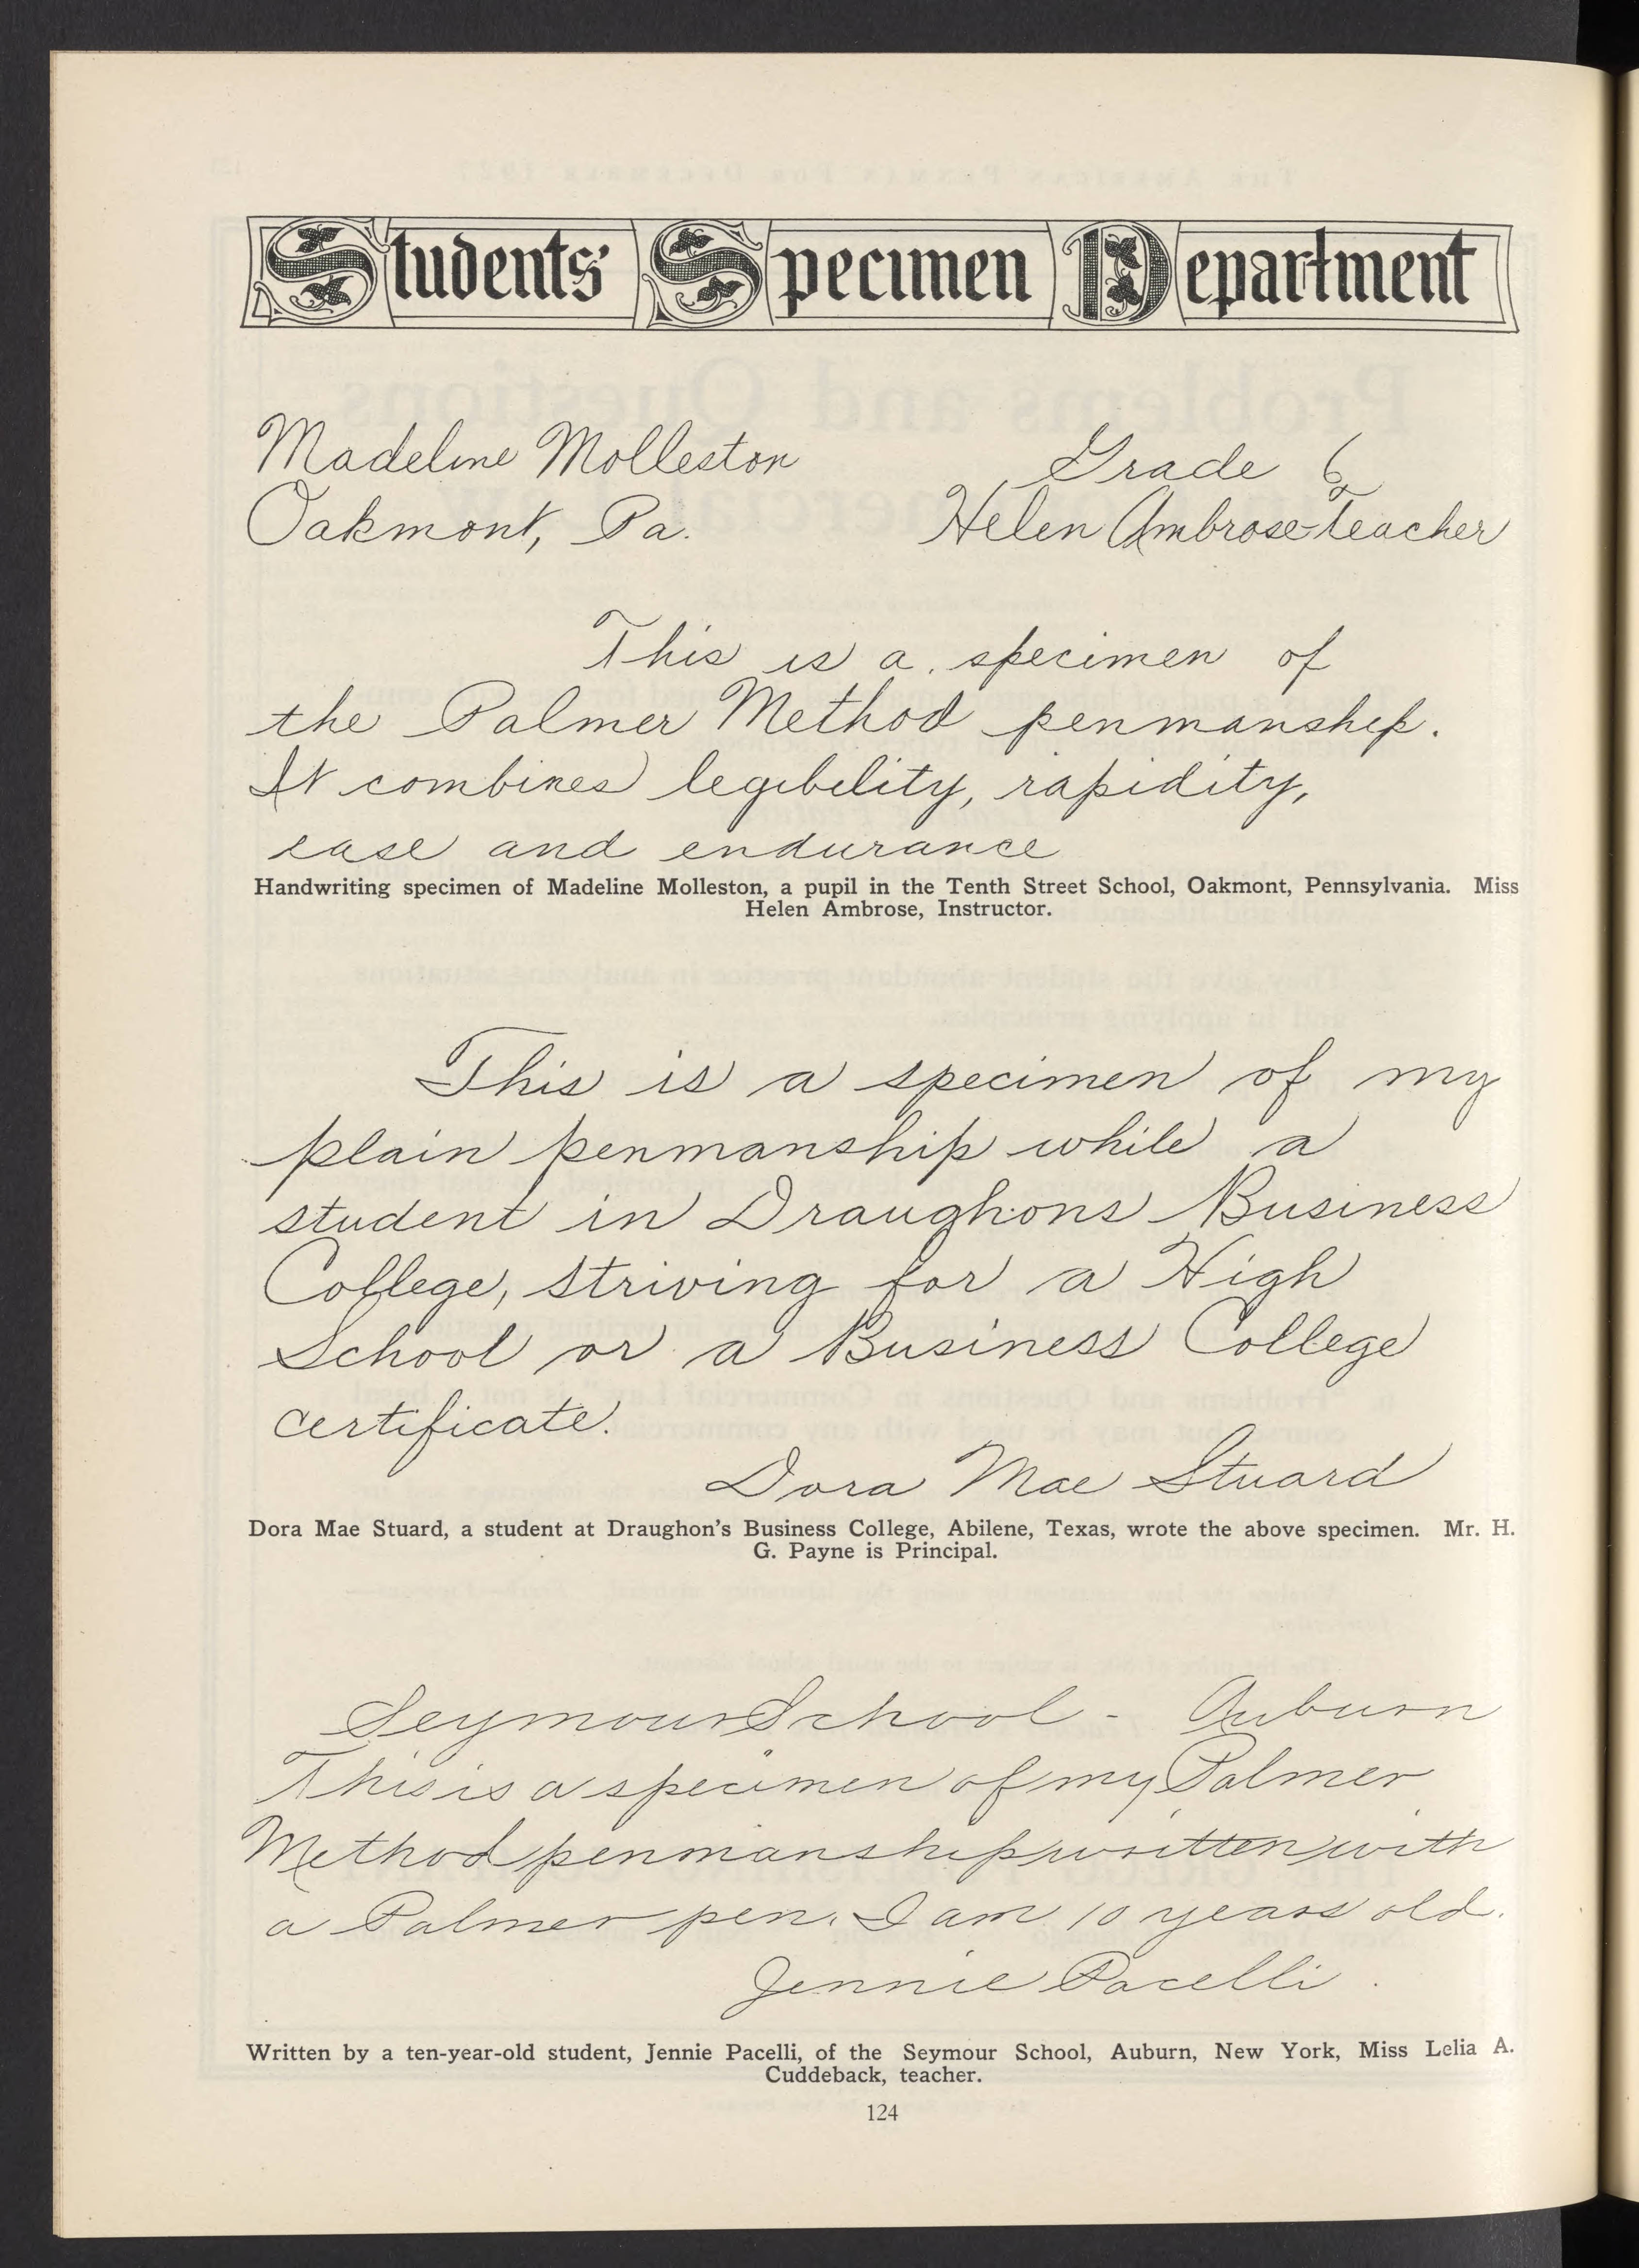 Students' Specimen Department
Madeline Molleston Grade 6
Oakmont, Pa. Helen Ambrose-Teacher
This is a specimen of
the Palmer Method penmanship.
It combines legibility, rapidity,
ease and endurance
Handwriting specimen of Madeline Molleston, a pupil in the Tenth Street School, Oakmont, Pennsylvania. Miss
Helen Ambrose, Instructor.
This is a specimen of my
plain penmanship while a
student in Draughons Business
College, striving for a High
School or a Business College
certificate.
Dora Mae Stuard
Dora Mae Stuard, a student at Draughon's Business College, Abilene, Texas, wrote the above specimen. Mr. H.
G. Payne is Principal.
Seymour School - Auburn
This is a specimen of my Palmer
Method penmanship written with
a Palmer pen. I am 10 years old.
Jennie Pacelli.
Written by a ten-year-old student, Jennie Pacelli, of the Seymour School, Auburn, New York, Miss Lelia A.
Cuddeback, teacher.
124